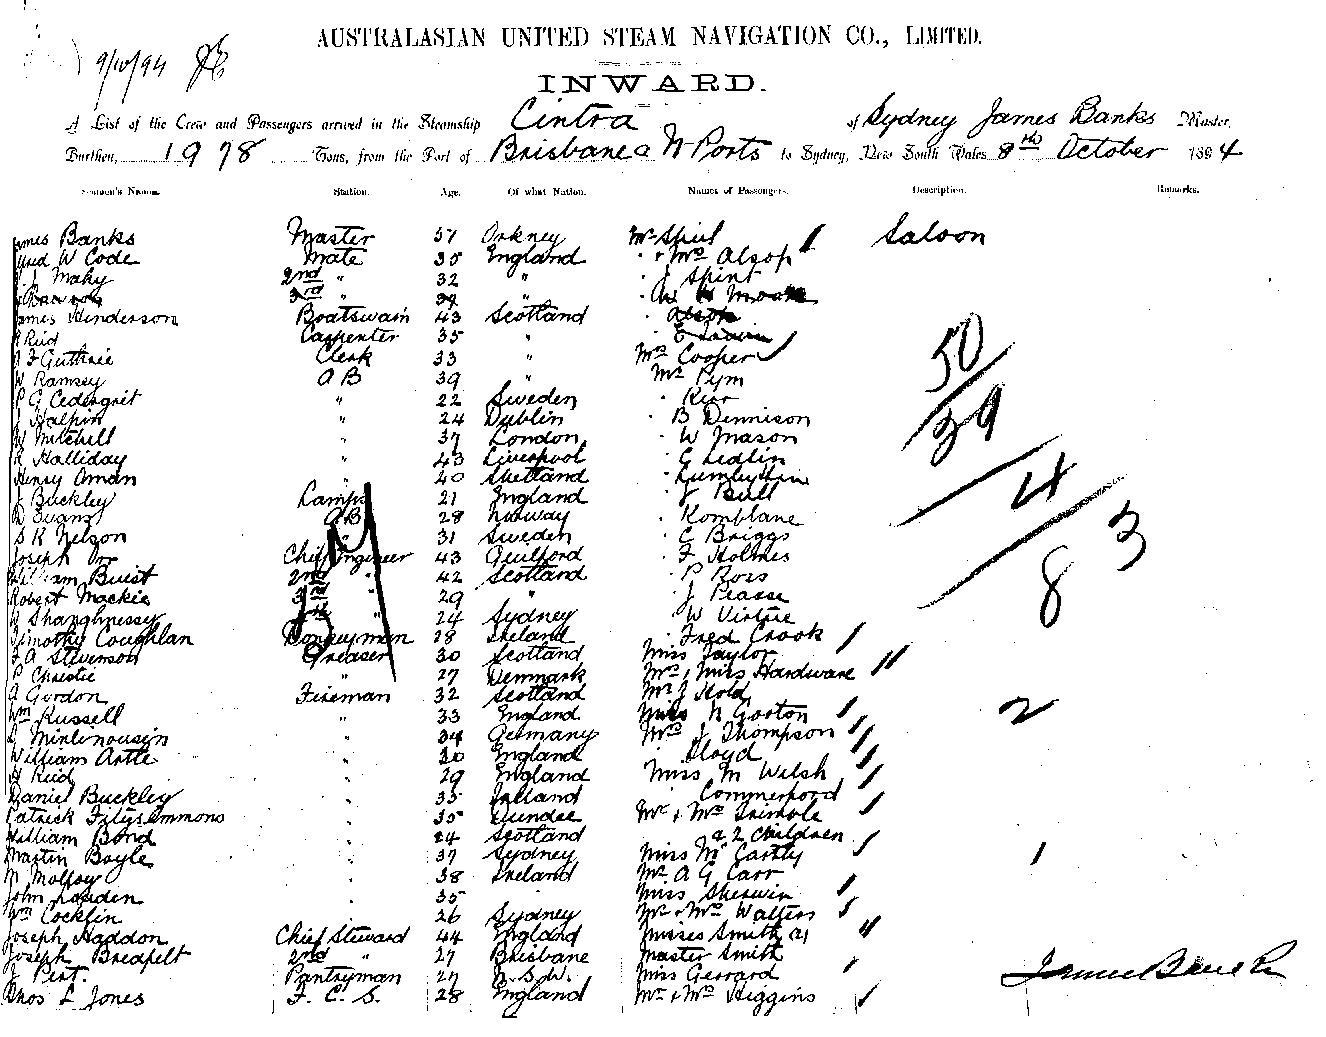 AUSTRALASIAN UNITED STEAM NAVIGATION CO., LIMITED.
9/10/94
INWARD.
A List of the Crew and Passengers arrived in the Steamship Cintra of Sydney James Banks Master,
Burthen, 1978 Tons, from the Port of Brisbane & N Ports to Sydney, New South Wales 8th October 1894
Seamen's Names. Station. Age. Of what Nation. Names of Passengers. Description. Remarks.
James Banks Master 57 Orkney Mr Saloon
W Code Mate 35 England " & Mrs Alsop
Mahy 2nd " 32 " " J Spint
3rd " "
James Henderson Boatswain 43 Scotland
Reid Carpenter 35 "
J F Guthrie Clerk 33 " Mrs Cooper
W Ramsey AB 39 " Mr Pym
P G " 22 Sweden "
Halpin " 24 Dublin " B Dennison
W Mitchill " 37 London " W Mason
R Halliday " 43 Liverpool "
Henry Oman " 40 Shetland "
J Buckley Lamps 21 England " J Bull
D Evans AB 28 Norway "
S R Nelson 31 Sweden " C Briggs
Joseph Chief Engineer 43 Guilford " F Holmes
William Buist 2nd " 42 Scotland " P Ross
Robert Mackie 3rd " 29 " " J Pearse
W Shaughnessy 4th " 24 Sydney " W Virtue
Timothy Coughlan Donkeyman 28 Ireland " Fred Crook
F A Stevenson Greaser 30 Scotland Miss Taylor
P Christie 27 Denmark Mrs & Miss Hardware
A Gordon Fireman 32 Scotland Mr J Hold
Wm Russell " 33 England Miss N Gooton
" 34 Germany Mrs J Thompson
William " 30 England " Lloyd
A Reid " 29 England Miss M Walsh
Daniel Buckley " 35 Ireland "
Patrick Fitzsimmons " 35 Dundee Mr & Mrs Trimble
William Bond " 24 Scotland & 2 Children
Martin Boyle " 37 Sydney Miss McCartly
M Molloy " 38 Ireland Mr A G Carr
John " 35 Miss Sherwin
Wm Cocklin 26 Sydney Mr & Mrs Walters
Joseph Haddon Chief Steward 44 England Misses Smith (2)
Joseph Bredfelt 2nd " 27 Brisbane Master Smith
J Pert Pantryman 27 N.S.W. Miss Gerrard
Thos L Jones F. C. S. 28 England Mr & Mrs Higgins
50
39
4
8
3
2
1
James Banks